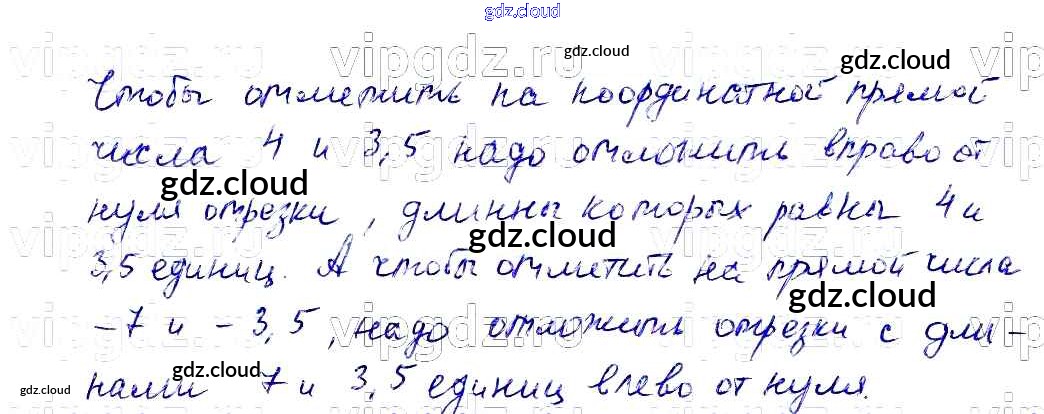 gdz.cloud
gdz.cloud
gdz.cloud
vipgdz.ru vipgdz.ru
Чтобы отметить на координатной прямой
числа 4 и 3,5 надо отложить вправо от
gdz.cloud
нуля отрезки, длинны которых равны 4 и
gdz.cloud
3,5 единиц. А чтобы отметить на прямой числа
gdz.cloud
-7 и -3,5, надо отложить отрезки с дли-
gdz.cloud
gdz.cloud
gdz.cloud
нами 7 и 3,5 единиц влево от нуля.